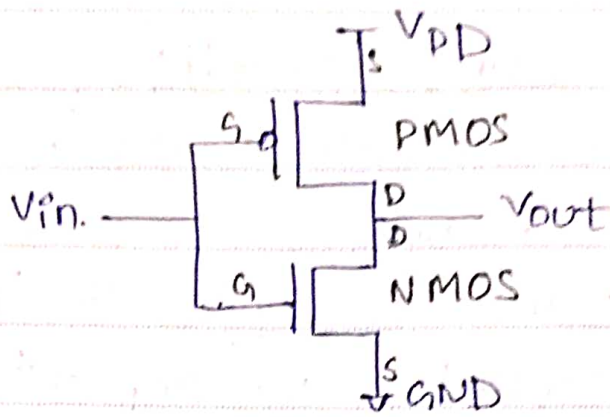 VDD
S
G
PMOS
D
Vin.
Vout
D
G
NMOS
S
GND